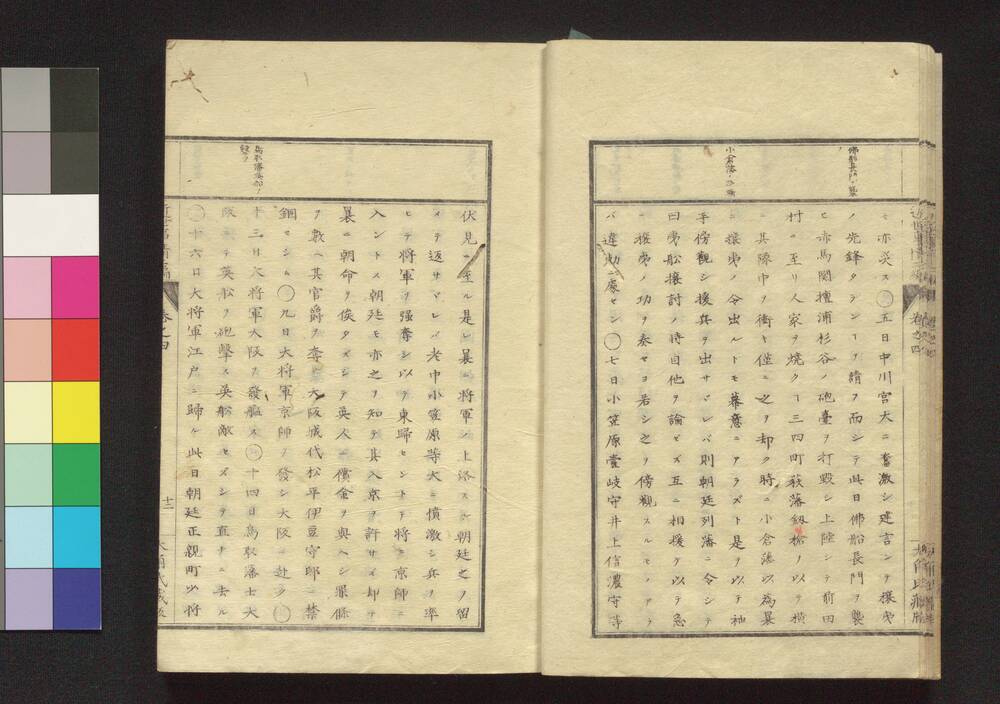 佛船長門ヲ襲
フ
小倉藩ノ
ヒ亦災ス〇五日中川宮大ニ奮激シ建言シテ攘夷
ノ先鋒タランヿヲ請フ而シテ此日佛船長門ヲ襲
ヒ赤馬関壇浦杉谷ノ砲臺ヲ打毀シ上陸シテ前田
村ニ至リ人家ヲ焼クヿ三四町萩藩劔槍ノ以テ横
ニ其陣中ヲ衝キ僅ニ之ヲ却ク時ニ小倉藩以為暴
ニ攘夷ノ令出ルトモ幕意ニアラズト是ヲ以テ袖
手傍観シ援兵ヲ出サヾレバ則朝廷列藩ニ令シテ
曰夷船攘討ノ時自他ヲ論ゼズ互ニ相援ケ以テ急
ニ攘夷ノ功ヲ奏セヨ若シ之ヲ傍観スルモノアラ
バ違勅ニ處セン〇七日小笠原壹岐守井上信濃守等
鳥取藩英船ヲ
撃ツ
伏見ニ至ル是ヨリ曩ニ将軍ノ上洛スル朝廷之ヲ留
メテ返サヾレバ老中小笠原等大ニ憤激シ兵ヲ率
ヒテ将軍ヲ強奪シ以テ東歸セントテ将ニ京師ニ
入ントス朝廷モ亦之ヲ知テ其入京ヲ許サズ却テ
曩ニ朝命ヲ俟タズシテ英人ニ償金ヲ與ヘシ罪條
ヲ數ヘ其官爵ヲ奪ヒ大阪城代松平伊豆守邸ニ禁
錮セシム〇九日大将軍京師ヲ發シ大阪ニ赴ク〇
十三日大将軍大阪ヲ發艦ス〇十四日鳥取藩士大
阪ニテ英船ヲ砲撃ス英船敵セズシテ直チニ去ル
〇十六日大将軍江戸ニ歸ル此日朝廷正親町少将
卷之四
十二